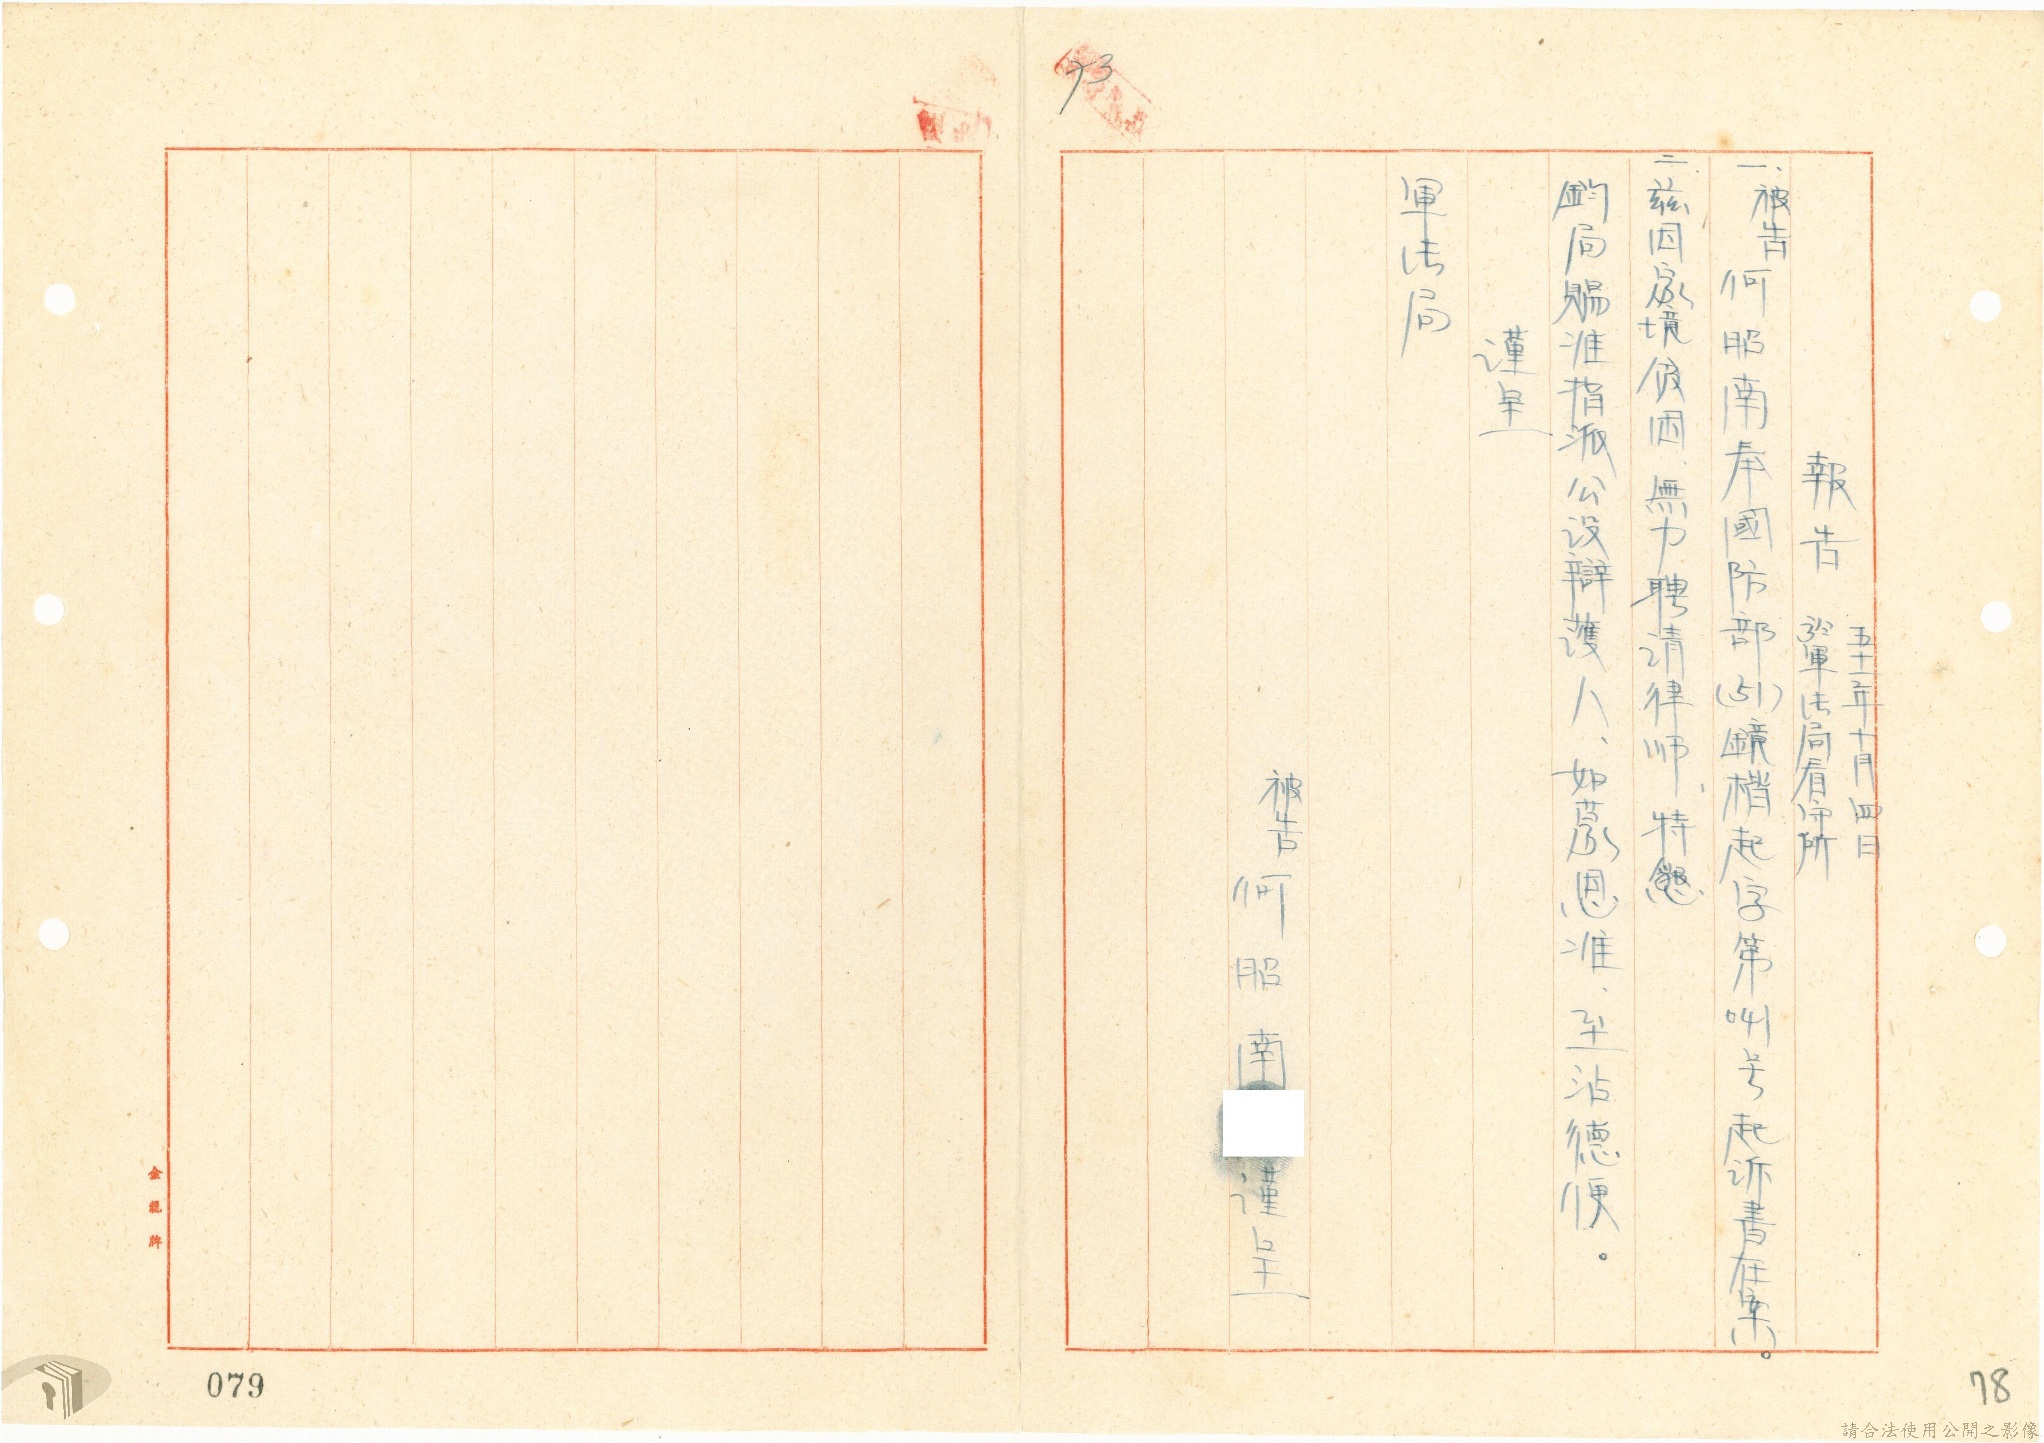 73
報告
五十一年十月四日
於軍法局看守所
一、被告何昭南奉國防部(51)鏡楷起字第041号起诉書在案。
二、茲因家境貧困、無力聘请律师、特懇
鈞局賜准指派公设辯護人、如蒙恩准、至沾德便。
谨呈
軍法局
被告何昭南谨呈
78
金龍牌
079
請合法使用公開之影像